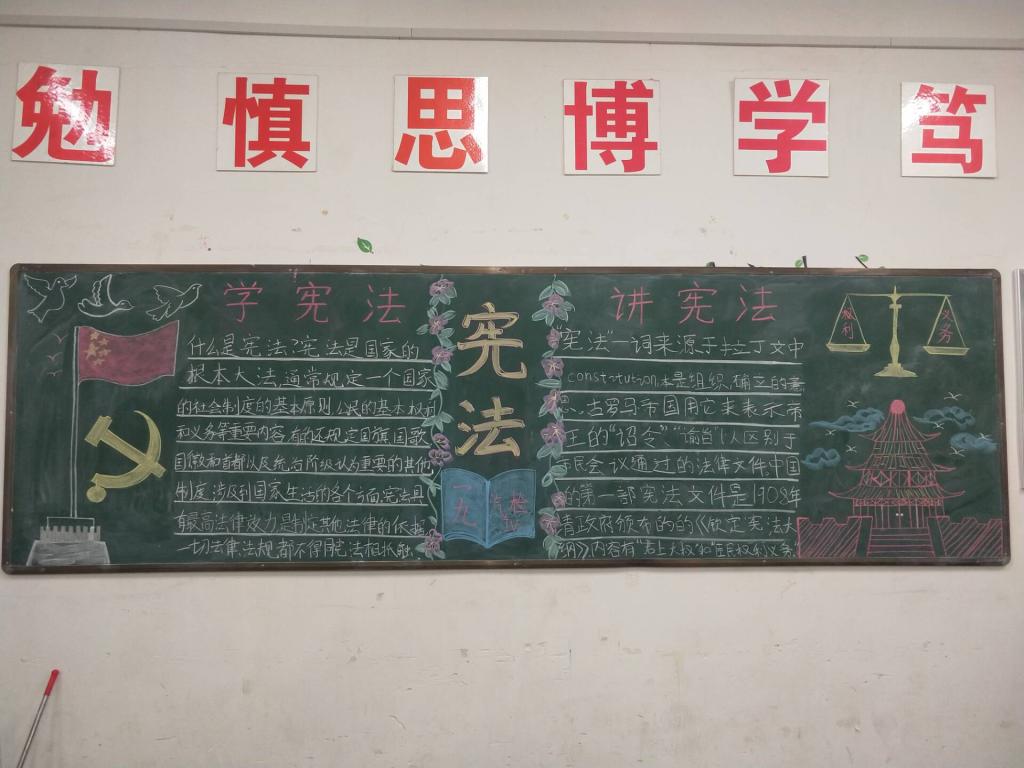 勉 慎 思 博 学 笃
学 宪 法
什么是宪法?宪法是国家的
根本大法,通常规定一个国家
的社会制度的基本原则公民的基本权利
和义务等重要内容,有的还规定国旗国歌
国徽和首都以及统治阶级认为重要的其他
制度,涉及到国家生活的各个方面宪法具
有最高法律效力是制定其他法律的依据
一切法律法规都不得同宪法相抵触
宪
法
一九
汽检
讲 宪 法
“宪法”一词来源于拉丁文中
constitution,本是组织、确立的意
思、古罗马帝国用它来表示帝
王的“诏令”“谕旨”以区别于
民会议通过的法律文件中国
的第一部宪法文件是1908年
清政府颁布的的《钦定宪法大
纲》内容有“君上大权”和“臣民权利义务
权利
义务